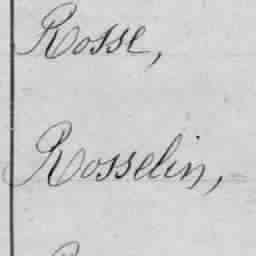 Rosse,
Rosselin,